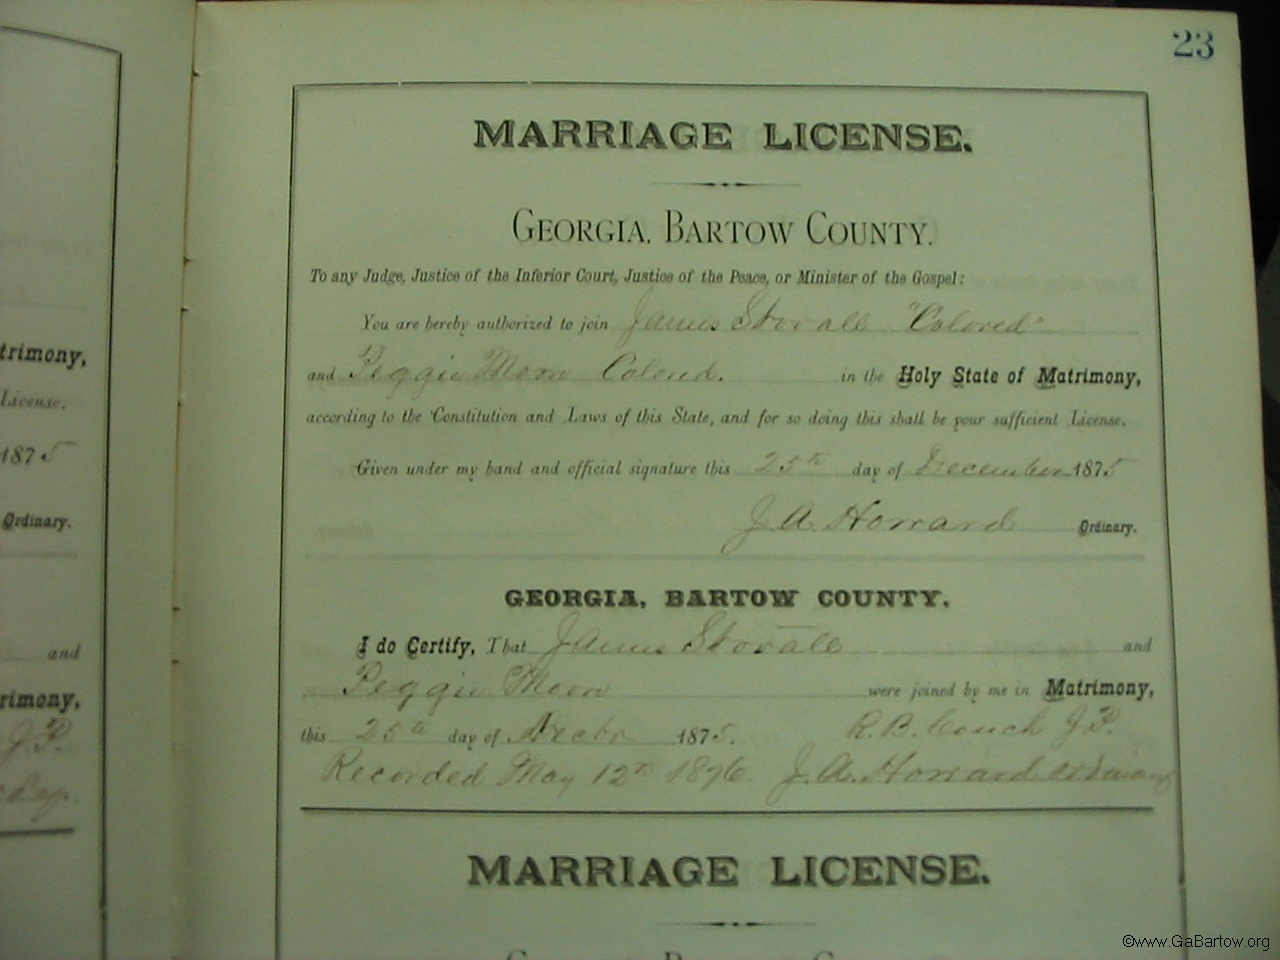 23
MARRIAGE LICENSE.
GEORGIA, BARTOW COUNTY.
To any Judge, Justice of the Inferior Court, Justice of the Peace, or Minister of the Gospel:
You are hereby authorized to join James Stovall "Colored"
and Peggie Moon Colored. in the Holy State of Matrimony,
according to the Constitution and Laws of this State, and for so doing this shall be your sufficient License.
Given under my hand and official signature this 25th day of December 1875
J. A. Howard Ordinary.
GEORGIA, BARTOW COUNTY.
I do Certify, That James Stovall and
Peggie Moon were joined by me in Matrimony,
this 25th day of Decbr 1875. R. B. Couch J.P.
Recorded May 12th 1876. J. A. Howard ordinary
MARRIAGE LICENSE.
trimony,
License.
1875
Ordinary.
and
rimony,
J.P.
©www.GaBartow.org